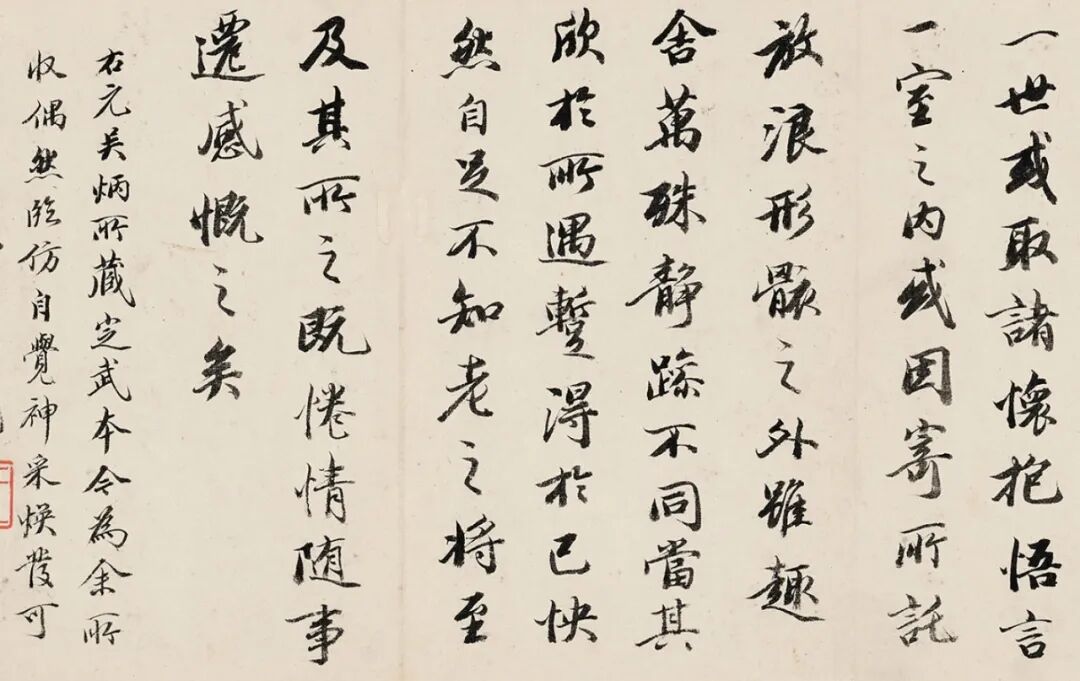 一世或取諸懷抱悟言
一室之内或因寄所託
放浪形骸之外雖趣
舍萬殊靜躁不同當其
欣於所遇暫得於己怏
然自足不知老之將至
及其所之既惓情随事
遷感慨之矣
右元吴炳所藏定武本今為余所
收偶然臨仿自覺神采煥發可